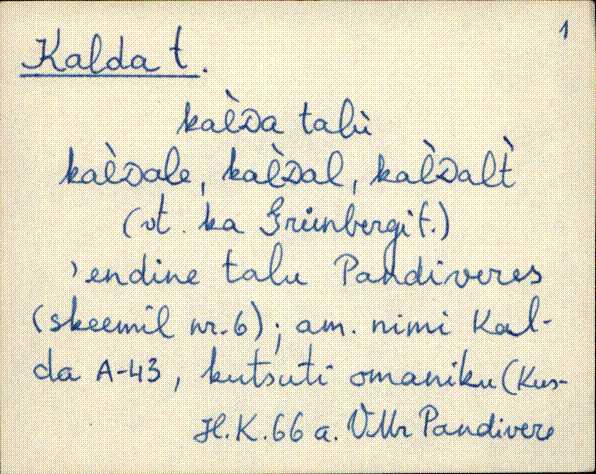 1
Kalda t.
kaʟ̀ᴅa talù
kaʟ̀ᴅale, kaʟ̀ᴅal, kaʟ̀ᴅalt̀
(vt. ka Grünbergi t.)
'endine talu Pandiveres
(skeemil nr. 6); am. nimi Kal-
da A-43, kutsuti omaniku (Kus-
H.K. 66 a. VMr Pandivere